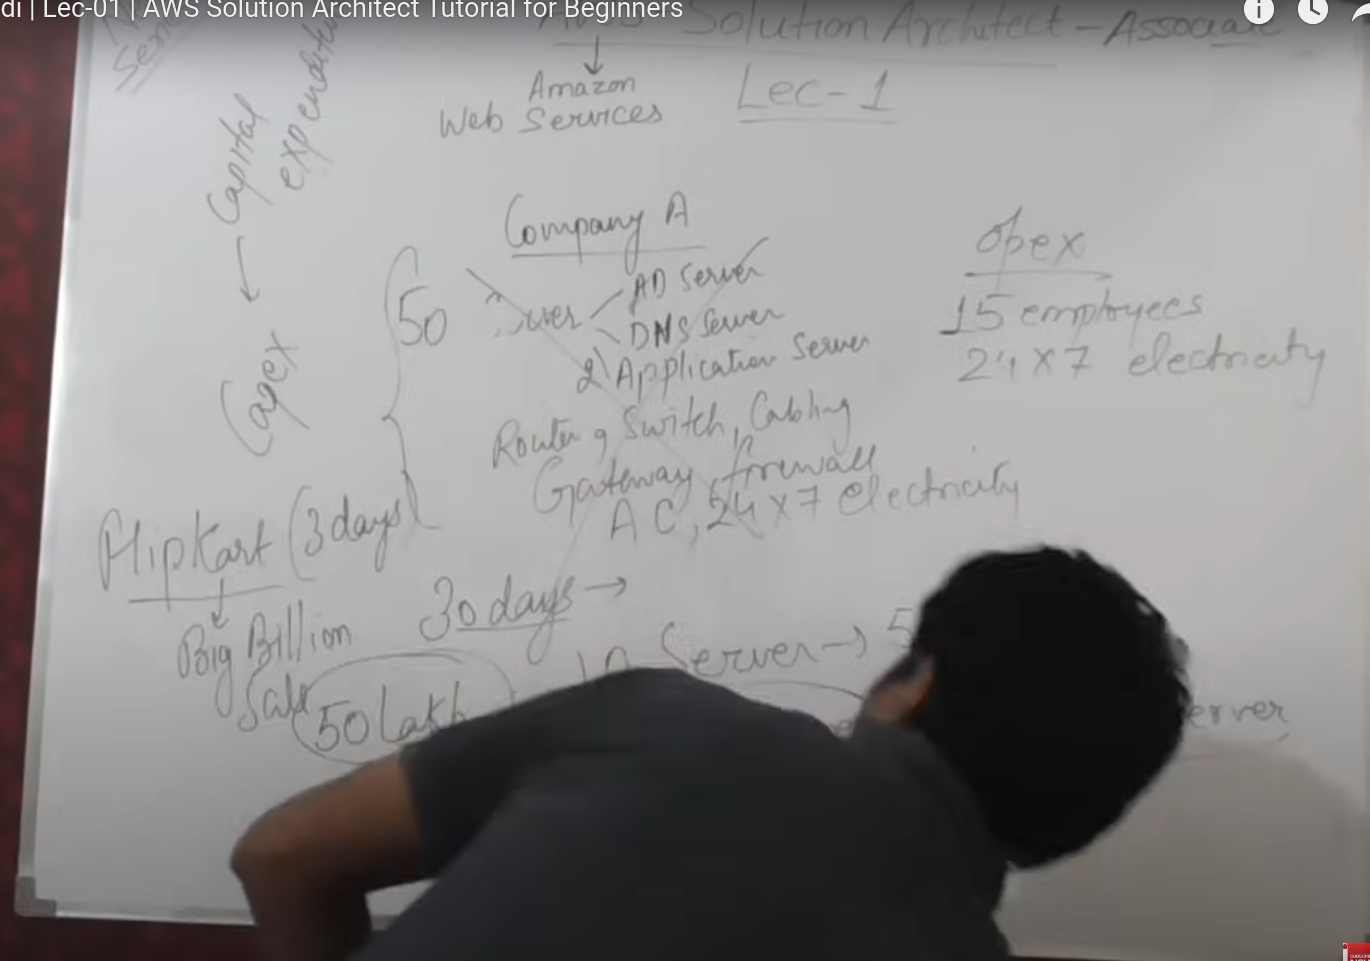 di | Lec-01 | AWS Solution Architect Tutorial for Beginners
Solution Architect - Associate
Amazon
Web Services
Lec-1
Capital
expenditure
Capex
Company A
50
AD Server
DNS Server
2 Application Server
Router, Switch, Cabling
Gateway firewall
AC, 24x7 electricity
Opex
15 employees
24x7 electricity
Flipkart (3 days)
Big Billion
Sale
30 days →
Server → 5
50 Lakh
erver